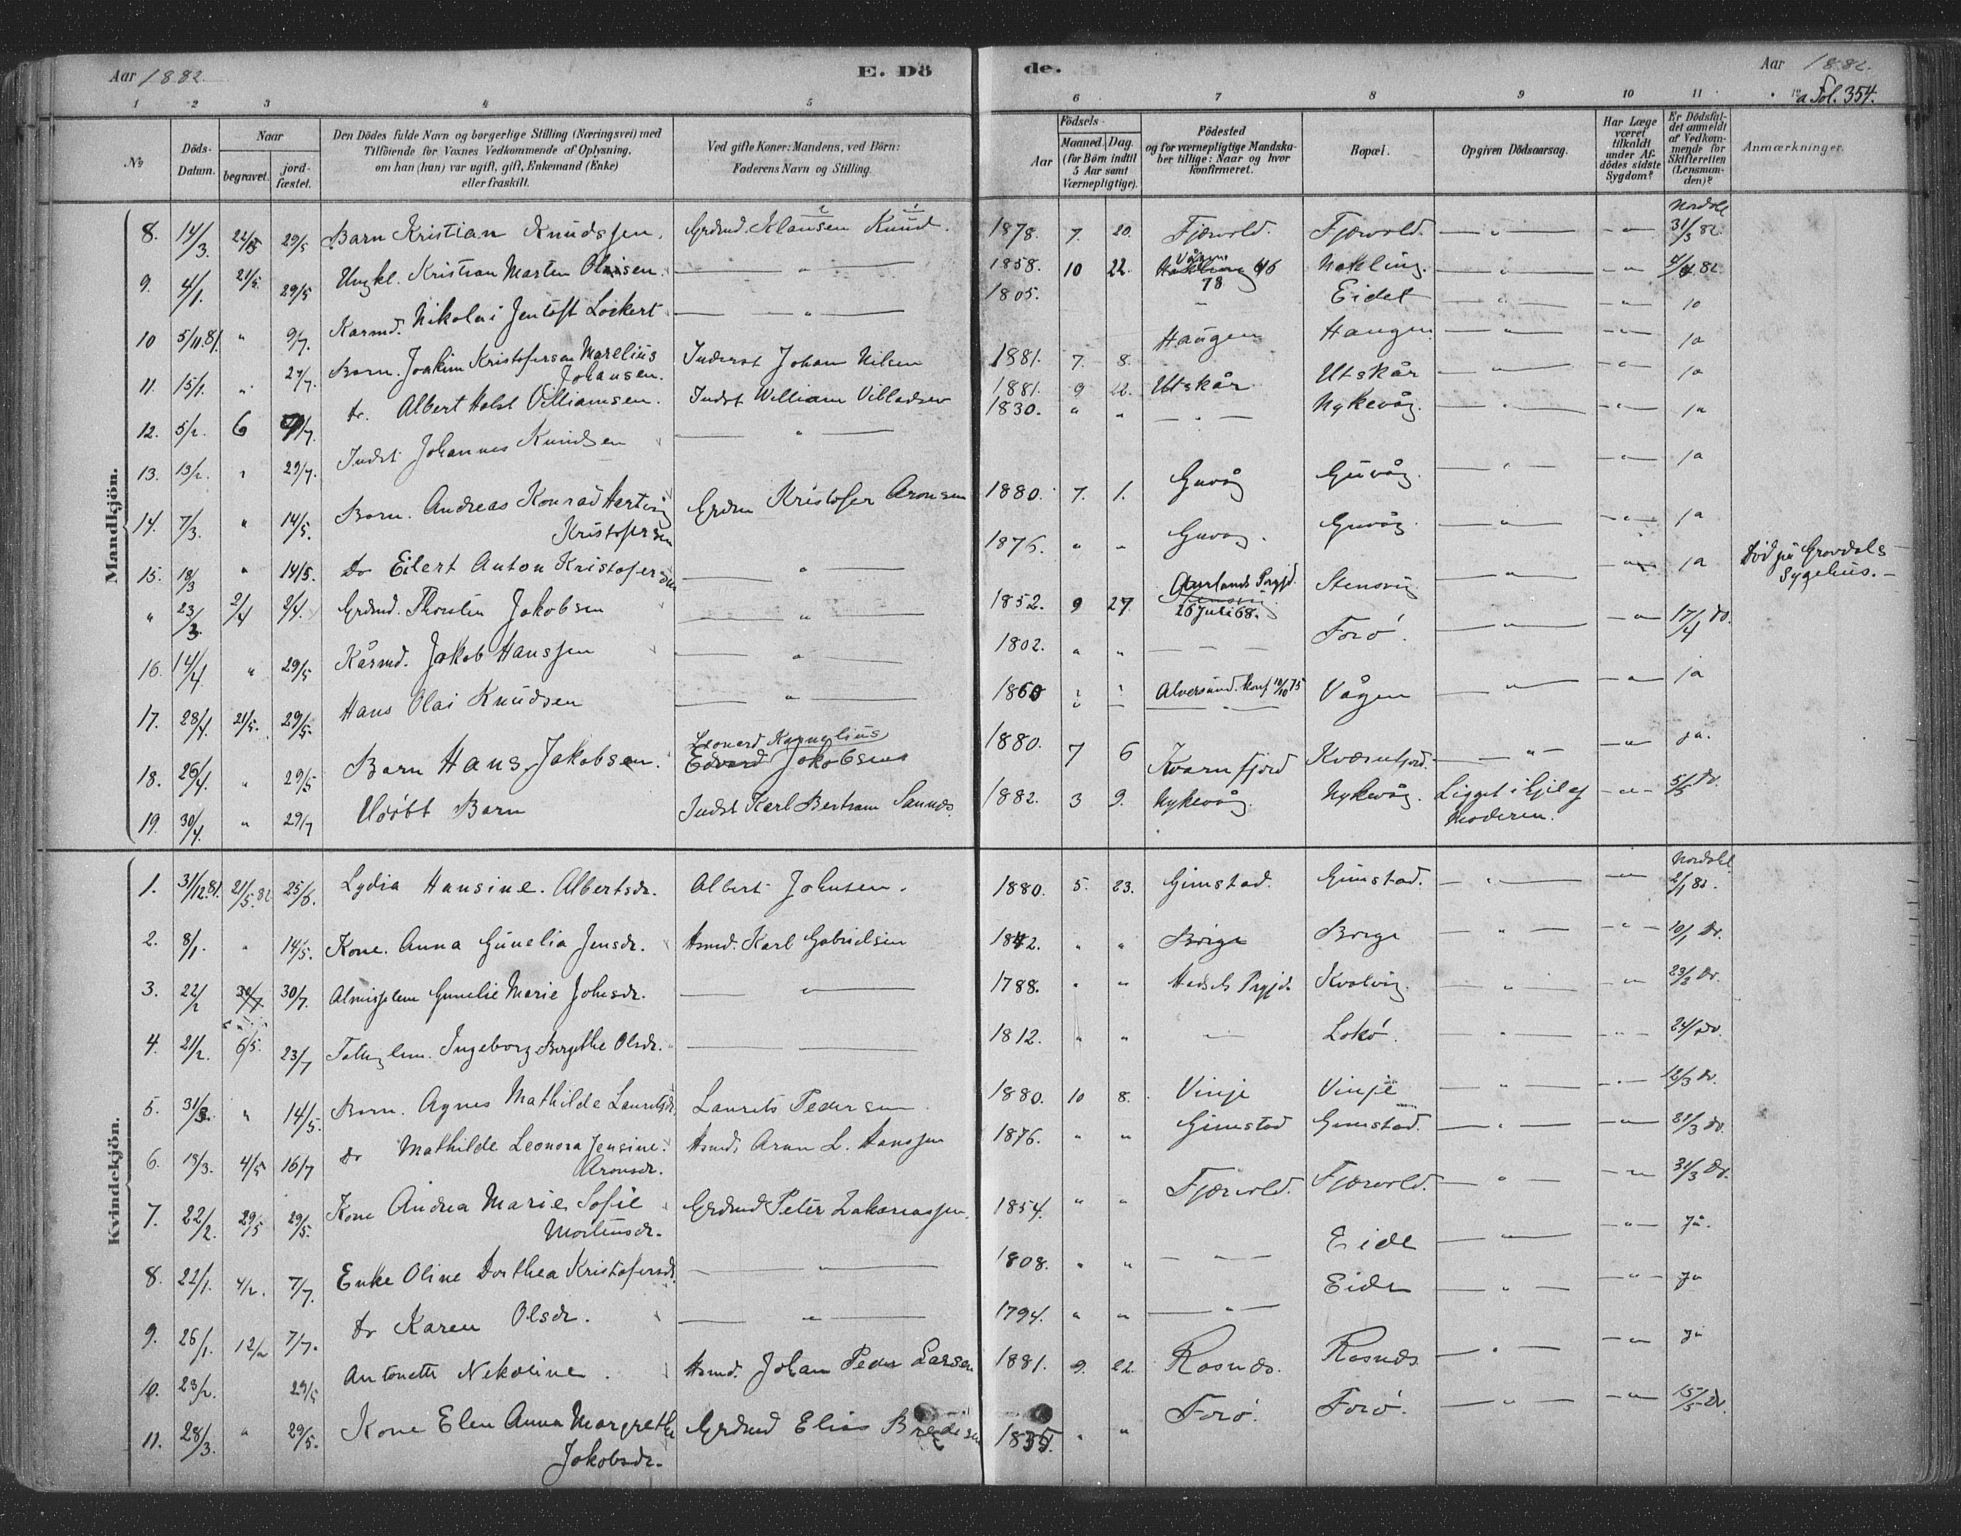 Aar 1882. E. Dö de. Aar 1882.
a Fol. 354.
1 2 3 4 5 6 7 8 9 10 11 12
No
Döds-Datum.
Naar
begravet.
jord-fæstet.
Den Dödes fulde Navn og borgerlige Stilling (Næringsvei) med
Tilföiende for Voxnes Vedkommende af Oplysning,
om han (hun) var ugift, gift, Enkemand (Enke)
eller fraskilt.
Ved gifte Koner: Mandens, ved Börn:
Faderens Navn og Stilling.
Födsels-
Aar
Maaned. Dag.
(for Börn indtil
5 Aar samt
Værnepligtige).
Födested
og for værnepligtige Mandska-
ber tillige: Naar og hvor
konfirmeret.
Bopæl.
Opgiven Dödsaarsag.
Har Læge
været
tilkaldt
under Af-
dödes sidste
Sygdom?
Er Dödsfal-
det anmeldt
af Vedkom-
mende for
Skifteretten
(Lensman-
den)?
Anmærkninger.
Mandkjön.
8. 14/3 22/5 29/5 Barn Kristian Knudssen. Grdmd. Klausen Knud. 1878. 7. 20. Fjærvold. Fjærvold. — " — — " — Nordal 31/3 82.
9. 4/1. 21/5. 29/5 Ungkl. Kristian Marten Olaisen. — " — 1858. 10 22. Vågen 78 Nakling. — " — — " — 82.
10 5/11.81. " 9/7. Kaarmd. Nikolai Jentoft Lockert — " — 1805. — Eidet — " — — " — ja
11. 15/1. " 29/7. Barn. Joakim Kristofersen Marelius Johansen. Inderst Johan Nilsen 1881. 7. 8. Haugen Haugen. — " — — " — ja
12. 5/2. 6 7/7. do. Albert Holst Villiamsen. Indst William Villadsen 1881. 9 22. Utskår Utskår — " — — " — ja
13. 13/2 " 29/7. Indst. Johannes Knudsen — " — 1830. " " — " — Nykevåg. — " — — " — ja
14. 7/3. " 14/5. Barn. Andreas Konrad Hertvig Kristofersen Grdm Kristofer Aronsen 1880. 7. 1. Guvåg Guvåg. — " — — " — ja
15. 18/3 " 14/5. do Eilert Anton Kristofersen — " — 1876. " " Guvåg. Guvåg. — " — — " — ja
" 23/3. 2/4 2/4. Grdmd. Thostein Jakobsen — " — 1852. 9 27. Aurlands Prgjd. 26 Juli 68. Stensvig — " — ja Död på Grovdals Sygehus. —
16. 14/4. " 29/5 Kårmd. Jakob Hanssen — " — 1802. " " — — Forö. — " — — " — 17/4 do.
17. 28/4. 21/5. 29/5. Hans Olai Knudsen — " — 1860 " " Alversund. Konf 10/10 75 Vågen — " — — " — ja
18. 26/4. " 29/5 Barn Hans Jakobsen. Leonard Kornelius Edvard Jakobsens 1880. 7 6 Kvarnfjord Kværnfjord. — " — — " — ja.
19. 30/4. " 29/7 Udöbt Barn Indst Karl Bertram Sannæs. 1882. 3 9. Nykevåg. Nykevåg. Ligget ihjel af Moderen. — " — 5/5 do.
Kvindekjön.
1. 31/12.81. 21/5.82 25/6. Lydia Hansine. Albertsdr. Albert Johnsen. 1880. 5. 23. Gimstad. Gimstad. — " — — " — Nordal 2/1 82.
2. 8/1. " 14/5. Kone. Anna Gunelia Jensdr. Hsmd. Karl Gabrielsen 1842. " " Borge Borge — " — — " — 10/1 do.
3. 22/2 30/7 30/7. Almisslem Gunelie Marie Johnsdr. — " — 1788. " " Hadsels Prgjd. Kvalvig. — " — — " — 23/2 do.
4. 21/2. 6/5. 23/7 Fattiglem. Ingeborg Bergithe Olsdr. — " — 1812. " " — Lokö. — " — — " — do.
5. 31/3. " 14/5. Barn. Agnes Mathilde Lauritsdr Laurits Pedersen. 1880. 10 8. Vinje Vinje — " — — " — 12/3 do.
6. 13/3. 4/5 16/7 do Mathilde Leonora Jensine. Aronsdr. Hsmd. Aron L. Hanssen 1876. " " Gimstad Gimstad. — " — — " — 21/3 do.
7. 22/2. 29/5 29/5. Kone Andrea Marie Sofie Mortensdr. Grdmd Peter Zakariassen. 1854. " " Fjærvold. Fjærvold. — " — — " — 31/3 do.
8. 22/1. 4/2. 7/7. Enke Oline Dorthea Kristofersdr. — " — 1808. " " — — — Eide — " — — " — ja.
9. 26/1. 12/2 7/7. do Karen Olsdr. — " — 1794. " " — " — Eide — " — — " — ja
10. 23/2. 29/5 Antonette Nekoline. Hsmd. Johan Peder Larsen 1881. 9. 22. Rosnæs. Rosnæs — " — — " — ja
11. 28/3. " 29/5. Kone Elen Anna Margrethe Jakobsdr. Grdmd Elias Bredesen 1835. " " Forö. Forö. — " — — " — 15/5 do.